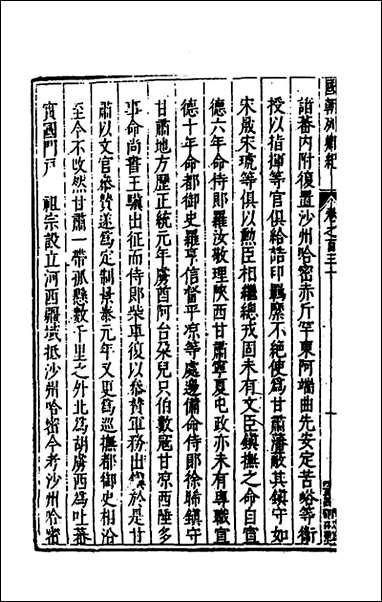 國朝列卿紀 卷之百三十
諸蕃内附復置沙州哈密赤斤罕東阿端曲先安定苦峪等衛
授以指揮等官俱給誥印羈縻不絶使爲甘肅藩蔽其鎮守如
宋晟宋琥等俱以勲臣相繼總戎固未有文臣鎮撫之命自宣
德六年命侍郎羅汝敬理陜西甘肅寧夏屯政亦未有專職宣
德十年命都御史羅亨信督平凉等處邊備命侍郎徐晞鎮守
甘肅地方歷正統元年虜酋阿台朶兒只伯數寇甘凉西陲多
事命尚書王驥出征而侍郎柴車復以叅賛軍務出鎮於是甘
肅以文官叅賛遂爲定制景泰元年又更爲巡撫都御史相沿
至今不改然甘肅一帶孤懸數千里之外北爲胡虜西爲吐蕃
寔國門戸 祖宗設立河西疆域抵沙州哈密今考沙州哈密